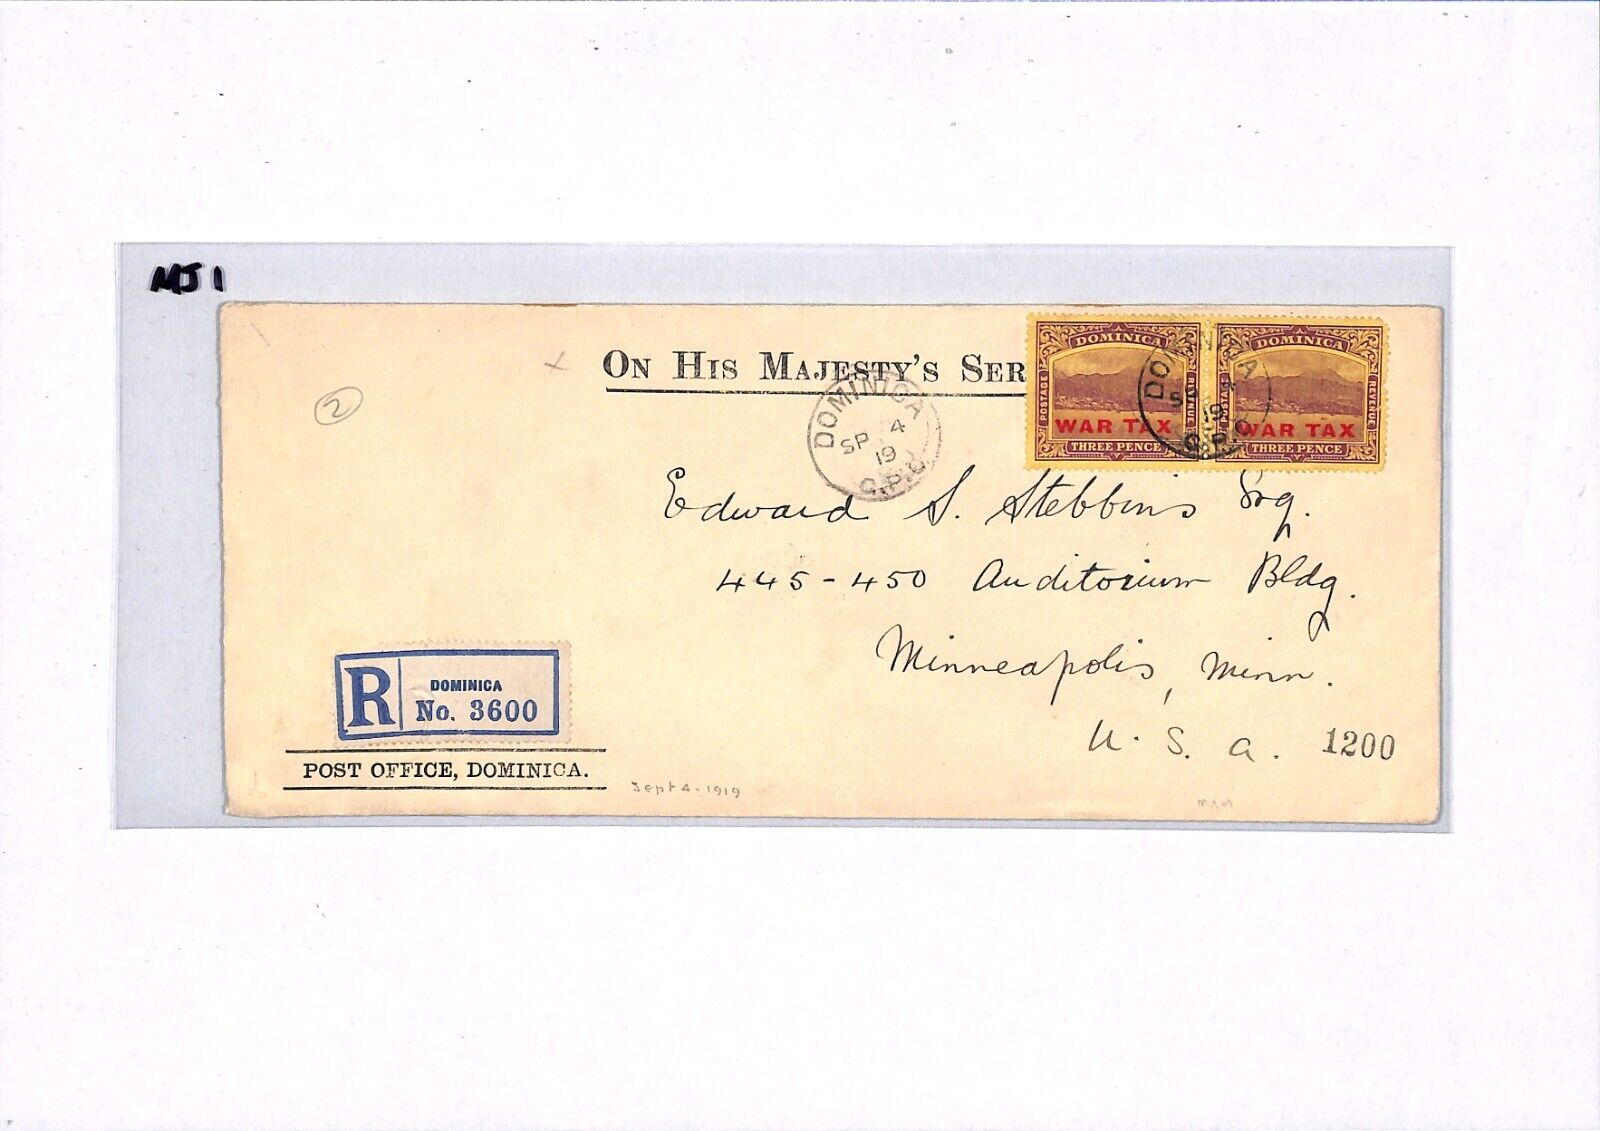 MJ 1
ON HIS MAJESTY'S SER
DOMINICA
POSTAGE
REVENUE
WAR TAX
THREE PENCE
DOMINICA
POSTAGE
REVENUE
WAR TAX
THREE PENCE
DOMINICA
SP 4
19
G.P.O
DOMINICA
SP 4
19
G.P.O
2
Edward S. Stebbins Esq.
445-450 Auditorium Bldg.
Minneapolis, Minn.
U. S. A.
1200
R
DOMINICA
No. 3600
POST OFFICE, DOMINICA.
Sept 4-1919